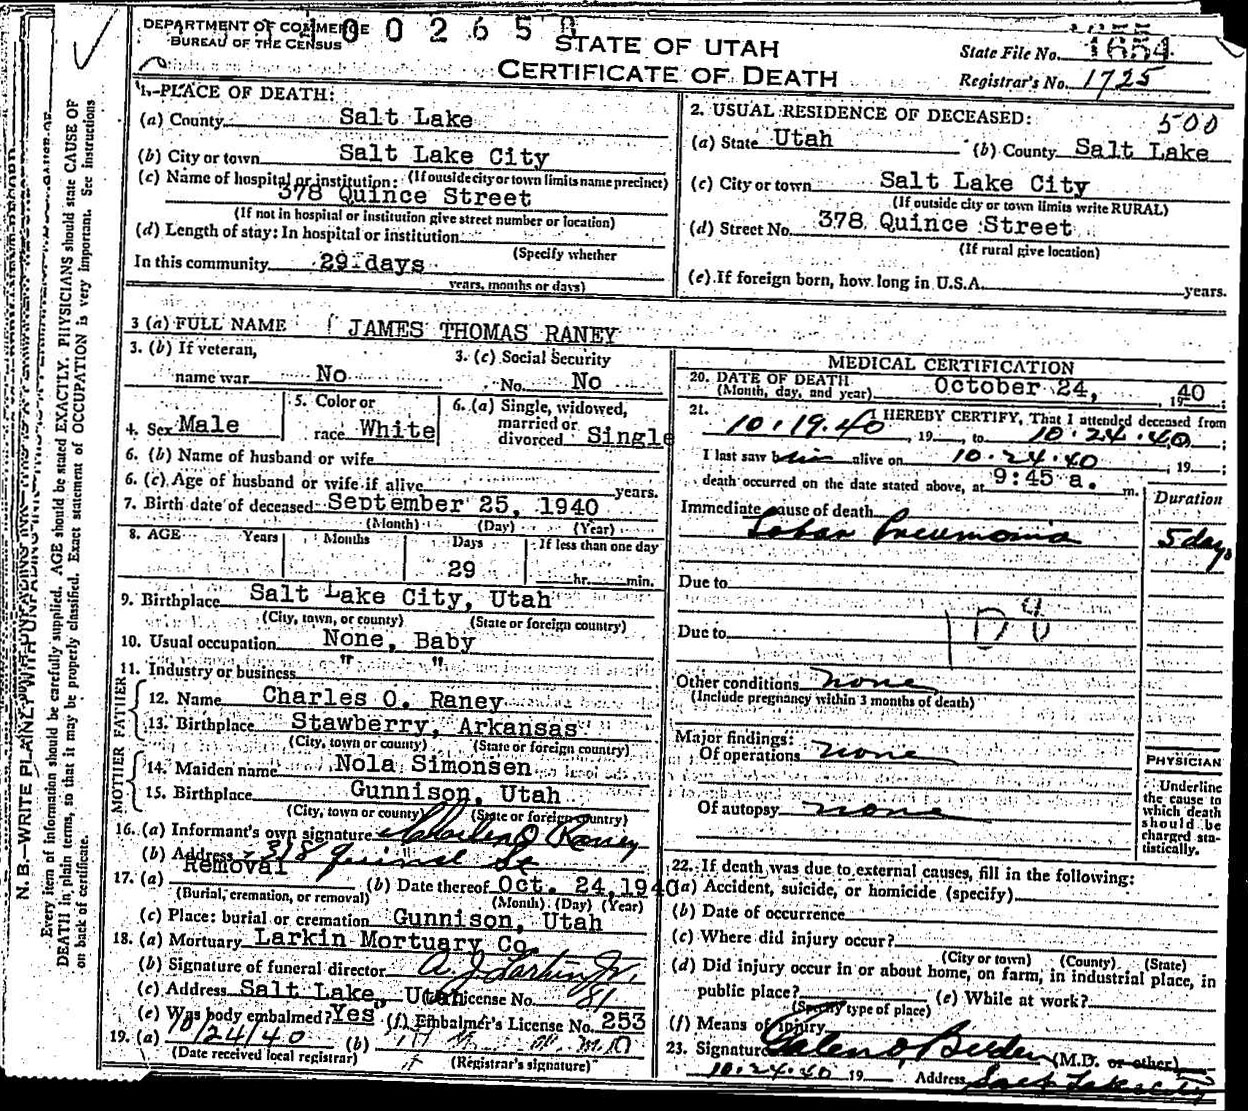 DEPARTMENT OF COMMERCE
BUREAU OF THE CENSUS
1002658
STATE OF UTAH
CERTIFICATE OF DEATH
State File No. 1654
Registrar's No. 1725
1. PLACE OF DEATH:
(a) County Salt Lake
(b) City or town Salt Lake City
(c) Name of hospital or institution: (If outside city or town limits name precinct)
378 Quince Street
(If not in hospital or institution give street number or location)
(d) Length of stay: In hospital or institution
(Specify whether
In this community 29 days
years, months or days)
2. USUAL RESIDENCE OF DECEASED: 500
(a) State Utah (b) County Salt Lake
(c) City or town Salt Lake City
(If outside city or town limits write RURAL)
(d) Street No. 378 Quince Street
(If rural give location)
(e) If foreign born, how long in U.S.A. years.
3 (a) FULL NAME JAMES THOMAS RANEY
3. (b) If veteran, name war No
3. (c) Social Security No. No
4. Sex Male
5. Color or race White
6. (a) Single, widowed, married or divorced Single
6. (b) Name of husband or wife
6. (c) Age of husband or wife if alive years.
7. Birth date of deceased September 25, 1940
(Month) (Day) (Year)
8. AGE Years Months Days If less than one day
29 hr. min.
9. Birthplace Salt Lake City, Utah
(City, town, or county) (State or foreign country)
10. Usual occupation None, Baby
11. Industry or business " "
FATHER
12. Name Charles O. Raney
13. Birthplace Stawberry, Arkansas
(City, town or county) (State or foreign country)
MOTHER
14. Maiden name Nola Simonsen
15. Birthplace Gunnison, Utah
(City, town or county) (State or foreign country)
16. (a) Informant's own signature Charles O Raney
(b) Address 318 Quince St
17. (a) Removal (b) Date thereof Oct. 24, 1940
(Burial, cremation, or removal) (Month) (Day) (Year)
(c) Place: burial or cremation Gunnison, Utah
18. (a) Mortuary Larkin Mortuary Co.
(b) Signature of funeral director A. J. Larkin Jr.
(c) Address Salt Lake, Utah License No. 81
(e) Was body embalmed? Yes (f) Embalmer's License No. 253
19. (a) 10/24/40 (b)
(Date received local registrar) (Registrar's signature)
MEDICAL CERTIFICATION
20. DATE OF DEATH October 24, 1940
(Month, day, and year)
21. I HEREBY CERTIFY, That I attended deceased from
10.19.40, 19 , to 10.24.40;
I last saw him alive on 10.24.40, 19 ;
death occurred on the date stated above, at 9:45 a. m.
Duration
Immediate cause of death
Lobar Pneumonia 5 days
Due to
Due to
108
Other conditions none
(Include pregnancy within 3 months of death)
Major findings:
Of operations none
Of autopsy none
PHYSICIAN
Underline the cause to which death should be charged statistically.
22. If death was due to external causes, fill in the following:
(a) Accident, suicide, or homicide (specify)
(b) Date of occurrence
(c) Where did injury occur?
(City or town) (County) (State)
(d) Did injury occur in or about home, on farm, in industrial place, in
public place? (e) While at work?
(Specify type of place)
(f) Means of injury
23. Signature Galen O. Belden (M.D. or other)
10.24.40 19 Address Salt Lake City
N. B.—WRITE PLAINLY WITH UNFADING INK
Every item of information should be carefully supplied. AGE should be stated EXACTLY. PHYSICIANS should state CAUSE OF
DEATH in plain terms, so that it may be properly classified. Exact statement of OCCUPATION is very important. See instructions
on back of certificate.